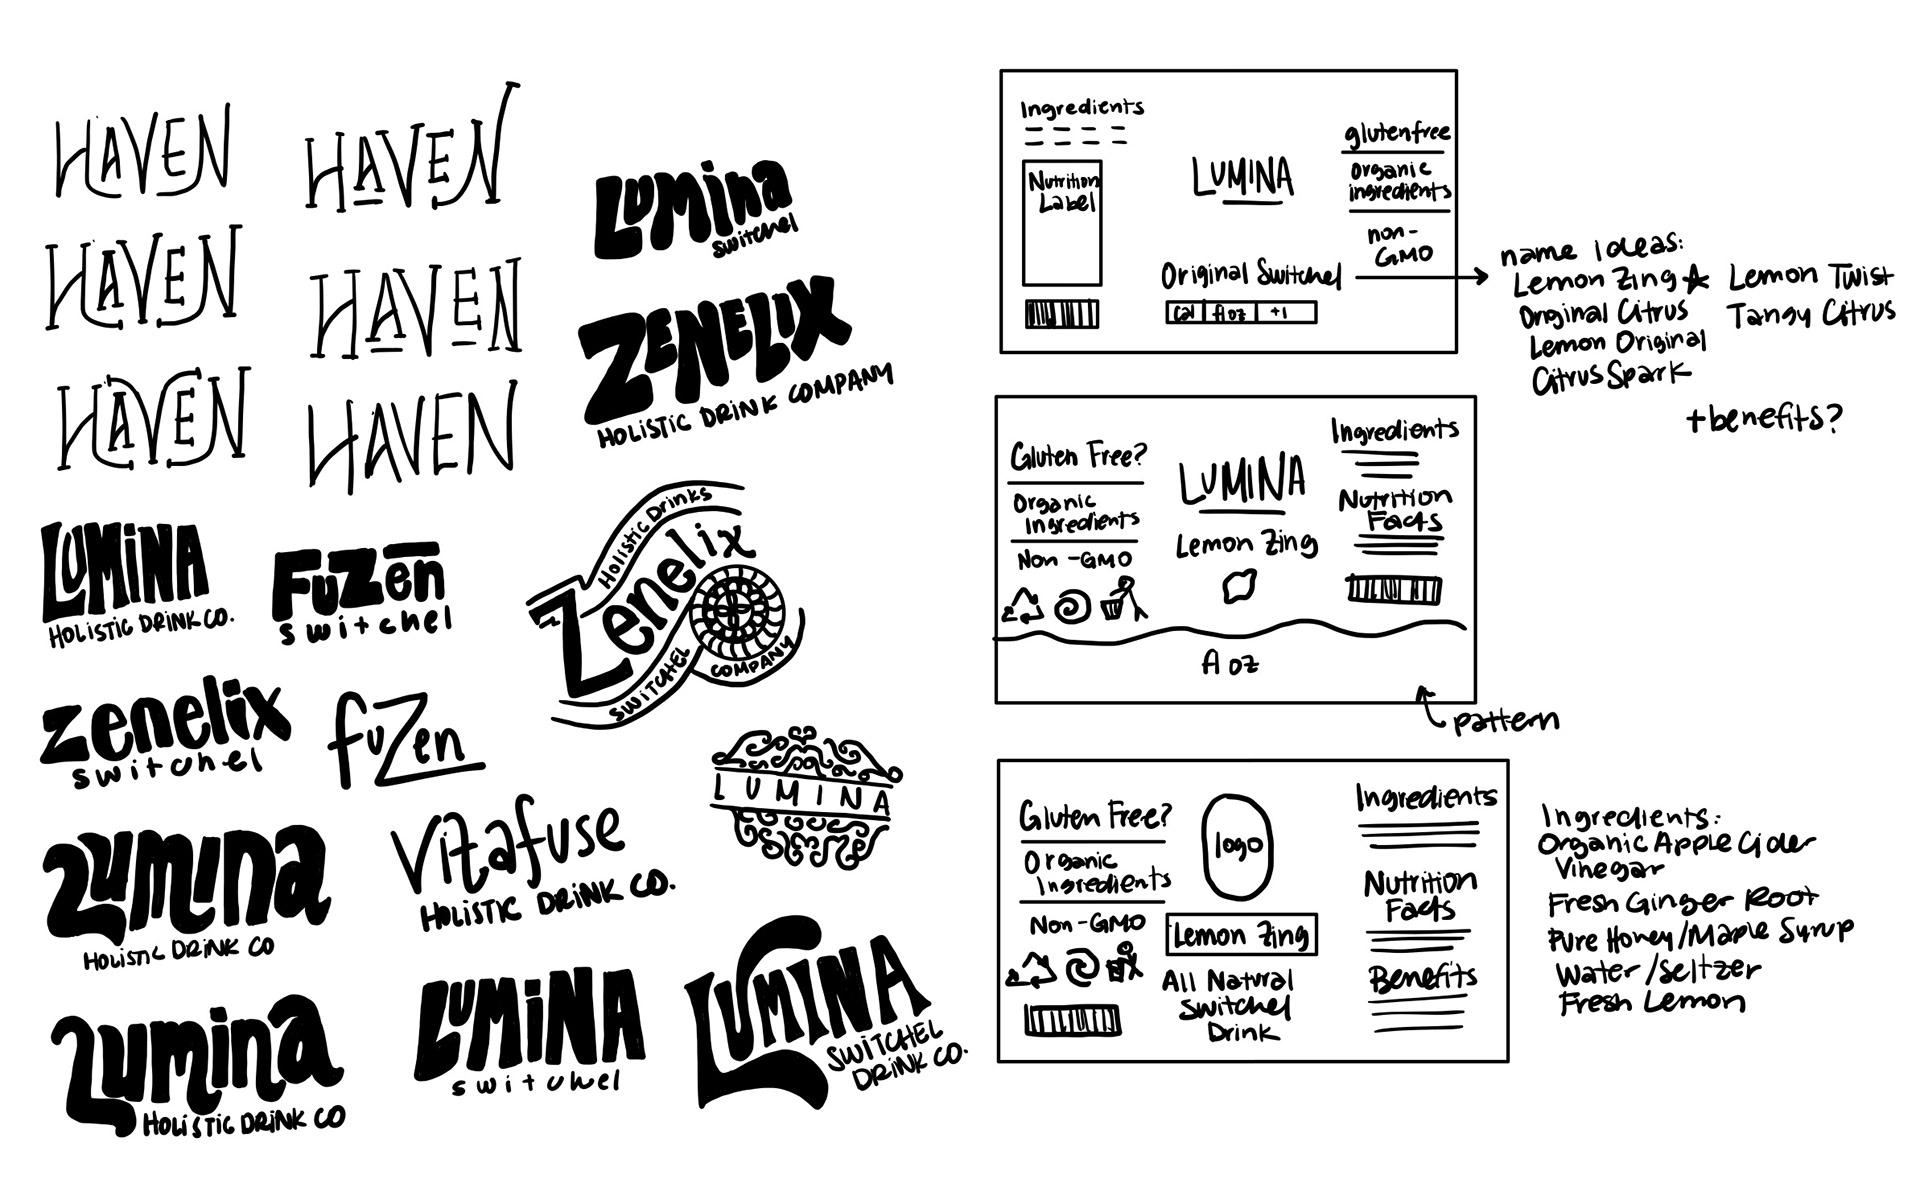 HAVEN
HAVEN
HAVEN
HAVEN
HAVEN
HAVEN
LUMINA
HOLISTIC DRINK CO.
FuZen
switchel
zenelix
switchel
fuZen
Lumina
HOLISTIC DRINK CO
Vitafuse
HOLISTIC DRINK CO.
Lumina
HOLISTIC DRINK CO
LUMINA
switchel
Lumina
switchel
ZENELIX
HOLISTIC DRINK COMPANY
Holistic Drinks
Zenelix
SWITCHEL
COMPANY
LUMINA
LUMINA
SWITCHEL
DRINK CO.
Ingredients
Nutrition
Label
LUMINA
Original Switchel
Cal
fl oz
+1
glutenfree
organic
ingredients
non-
GMO
name ideas:
Lemon Zing
Lemon Twist
Original Citrus
Tangy Citrus
Lemon Original
Citrus Spark
+benefits?
Gluten Free?
Organic
Ingredients
Non-GMO
LUMINA
Lemon Zing
fl oz
Ingredients
Nutrition
Facts
pattern
Gluten Free?
Organic
Ingredients
Non-GMO
logo
Lemon Zing
All Natural
Switchel
Drink
Ingredients
Nutrition
Facts
Benefits
Ingredients:
Organic Apple Cider
Vinegar
Fresh Ginger Root
Pure Honey/Maple Syrup
Water/Seltzer
Fresh Lemon